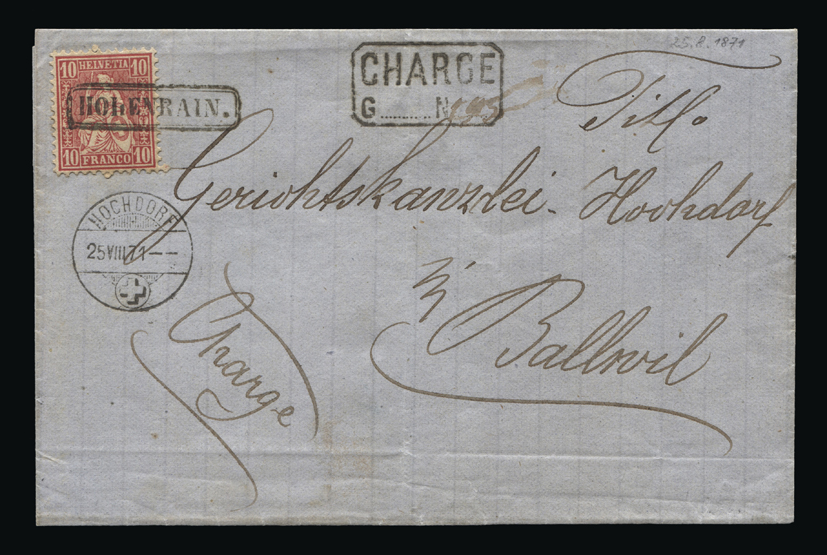 25.8.1871
10 HELVETIA 10
10 FRANCO 10
HOHENRAIN.
CHARGE
G.......... N 195
Titl.
Gerichtskanzlei Hochdorf
HOCHDORF
25 VIII 71 – –
z/
Ballwil
Charge